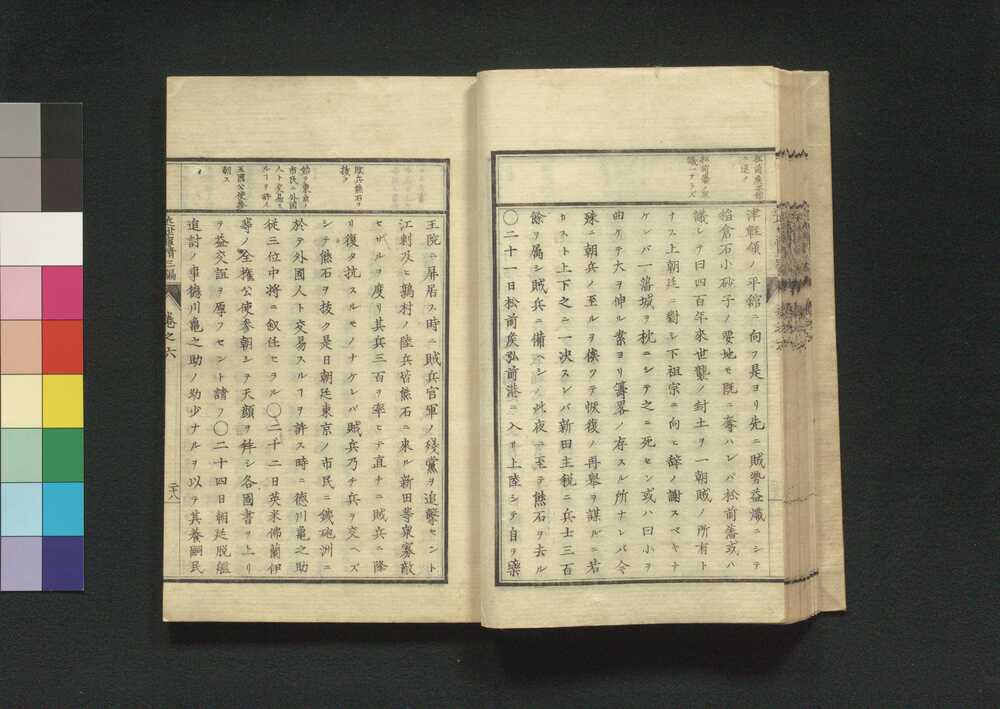 松前藩ノ衆
議一ナラズ
津軽領ノ平舘ニ向フ是ヨリ先ニ賊勢益熾ニシテ
稻倉石小砂子ノ要地モ既ニ奪ハレバ松前藩或ハ
議シテ曰四百年來世襲ノ封土ヲ一朝賊ノ所有ト
ナス上朝廷ニ對シ下祖宗ニ向ヒ辞ノ謝スベキナ
ケレバ一藩城ヲ枕ニシテ之ニ死セン或ハ曰小ヲ
曲ケテ大ヲ伸ル素ヨリ籌畧ノ存スル所ナレバ今
殊ニ朝兵ノ至ルヲ俟ツテ恢復ノ再舉ヲ謀ルニ若
カスト上下之ニ一决スレバ新田主税ニ兵士三百
餘ヲ属シ賊兵ニ備ヘシノ此夜ニ至テ熊石ヲ去ル
〇二十一日松前矦弘前港ニ入リ上陸シテ自ヲ藥
敗兵熊石ヲ
拔ク
始テ東京ノ
市民ニ外國
人ト交易ス
ルヿヲ許ス
五國公使参
朝ス
王院ニ屏居ス時ニ賊兵官軍ノ殘黨ヲ追擊セント
江刺及ヒ鶉村ノ陸兵皆熊石ニ來ル新田等衆寡敵
セザルヲ度リ其兵三百ヲ率ヒテ直チニ賊兵ニ降
リ復タ抗スルモノナケレバ賊兵乃チ兵ヲ交ヘズ
シテ熊石ヲ拔ク是日朝廷東京ノ市民ニ鐵砲洲ニ
於テ外國人ト交易スルヿヲ許ス時ニ德川亀之助
從三位中將ニ叙任セラル〇二十二日英米佛蘭伊
等ノ全權公使参朝シテ天顔ヲ拜シ各國書ヲ上リ
テ益交誼ヲ厚フセント請フ〇二十四日朝廷脱艦
追討ノ事德川亀之助ノ幼少ナルヲ以テ其養嗣民
卷之六
二十八